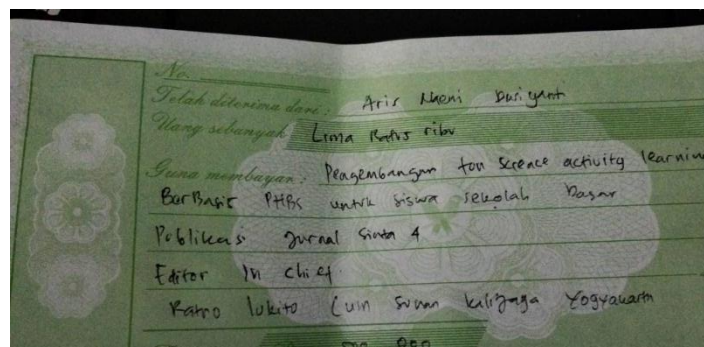 No.
Telah diterima dari : Aris Nheni Dwiyanti
Uang sebanyak Lima Ratus ribu
Guna membayar : Pengembangan fun science activity learning
BerBasis PHBS untuk siswa sekolah Dasar
Publikasi Jurnal Sinta 4
Editor In Chief.
Ratno lukito (uin sunan kalijaga Yogyakarta
500 000